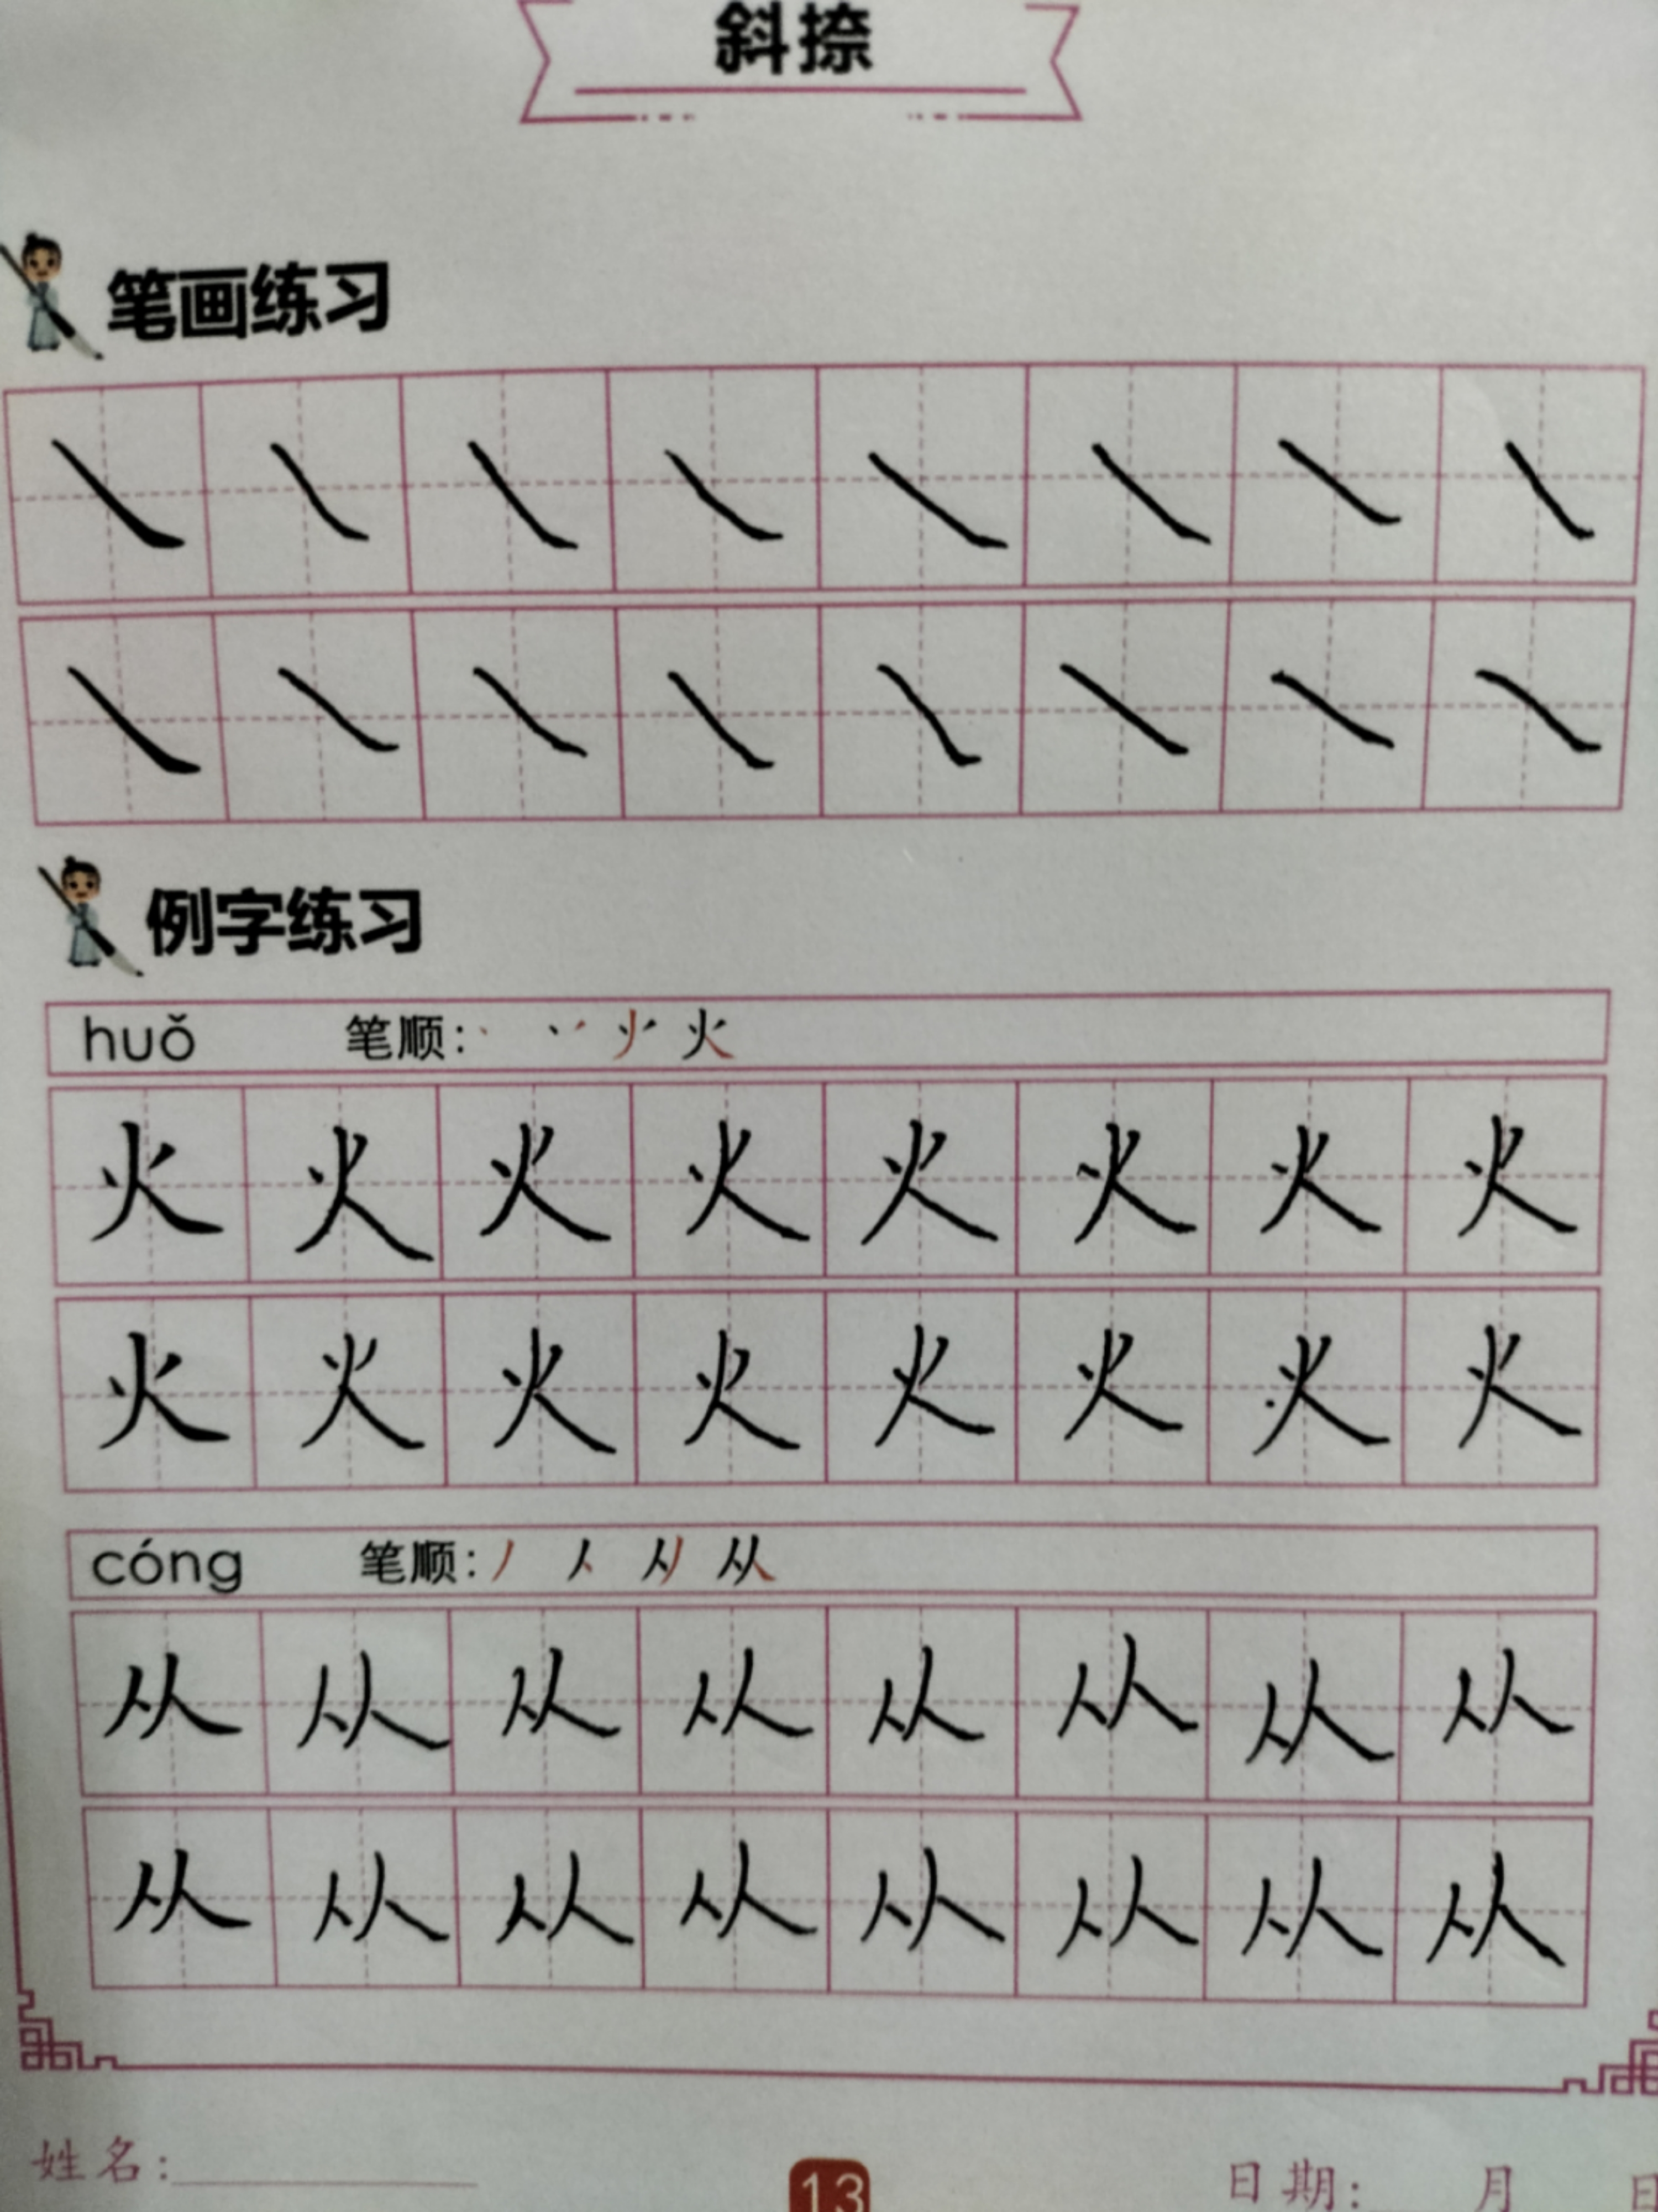 斜捺
笔画练习
㇏ ㇏ ㇏ ㇏ ㇏ ㇏ ㇏ ㇏
㇏ ㇏ ㇏ ㇏ ㇏ ㇏ ㇏ ㇏
例字练习
huǒ 笔顺: 火
火 火 火 火 火 火 火 火
火 火 火 火 火 火 火 火
cóng 笔顺: 丿 人 从
从 从 从 从 从 从 从 从
从 从 从 从 从 从 从 从
姓名: 13 日期: 月 日